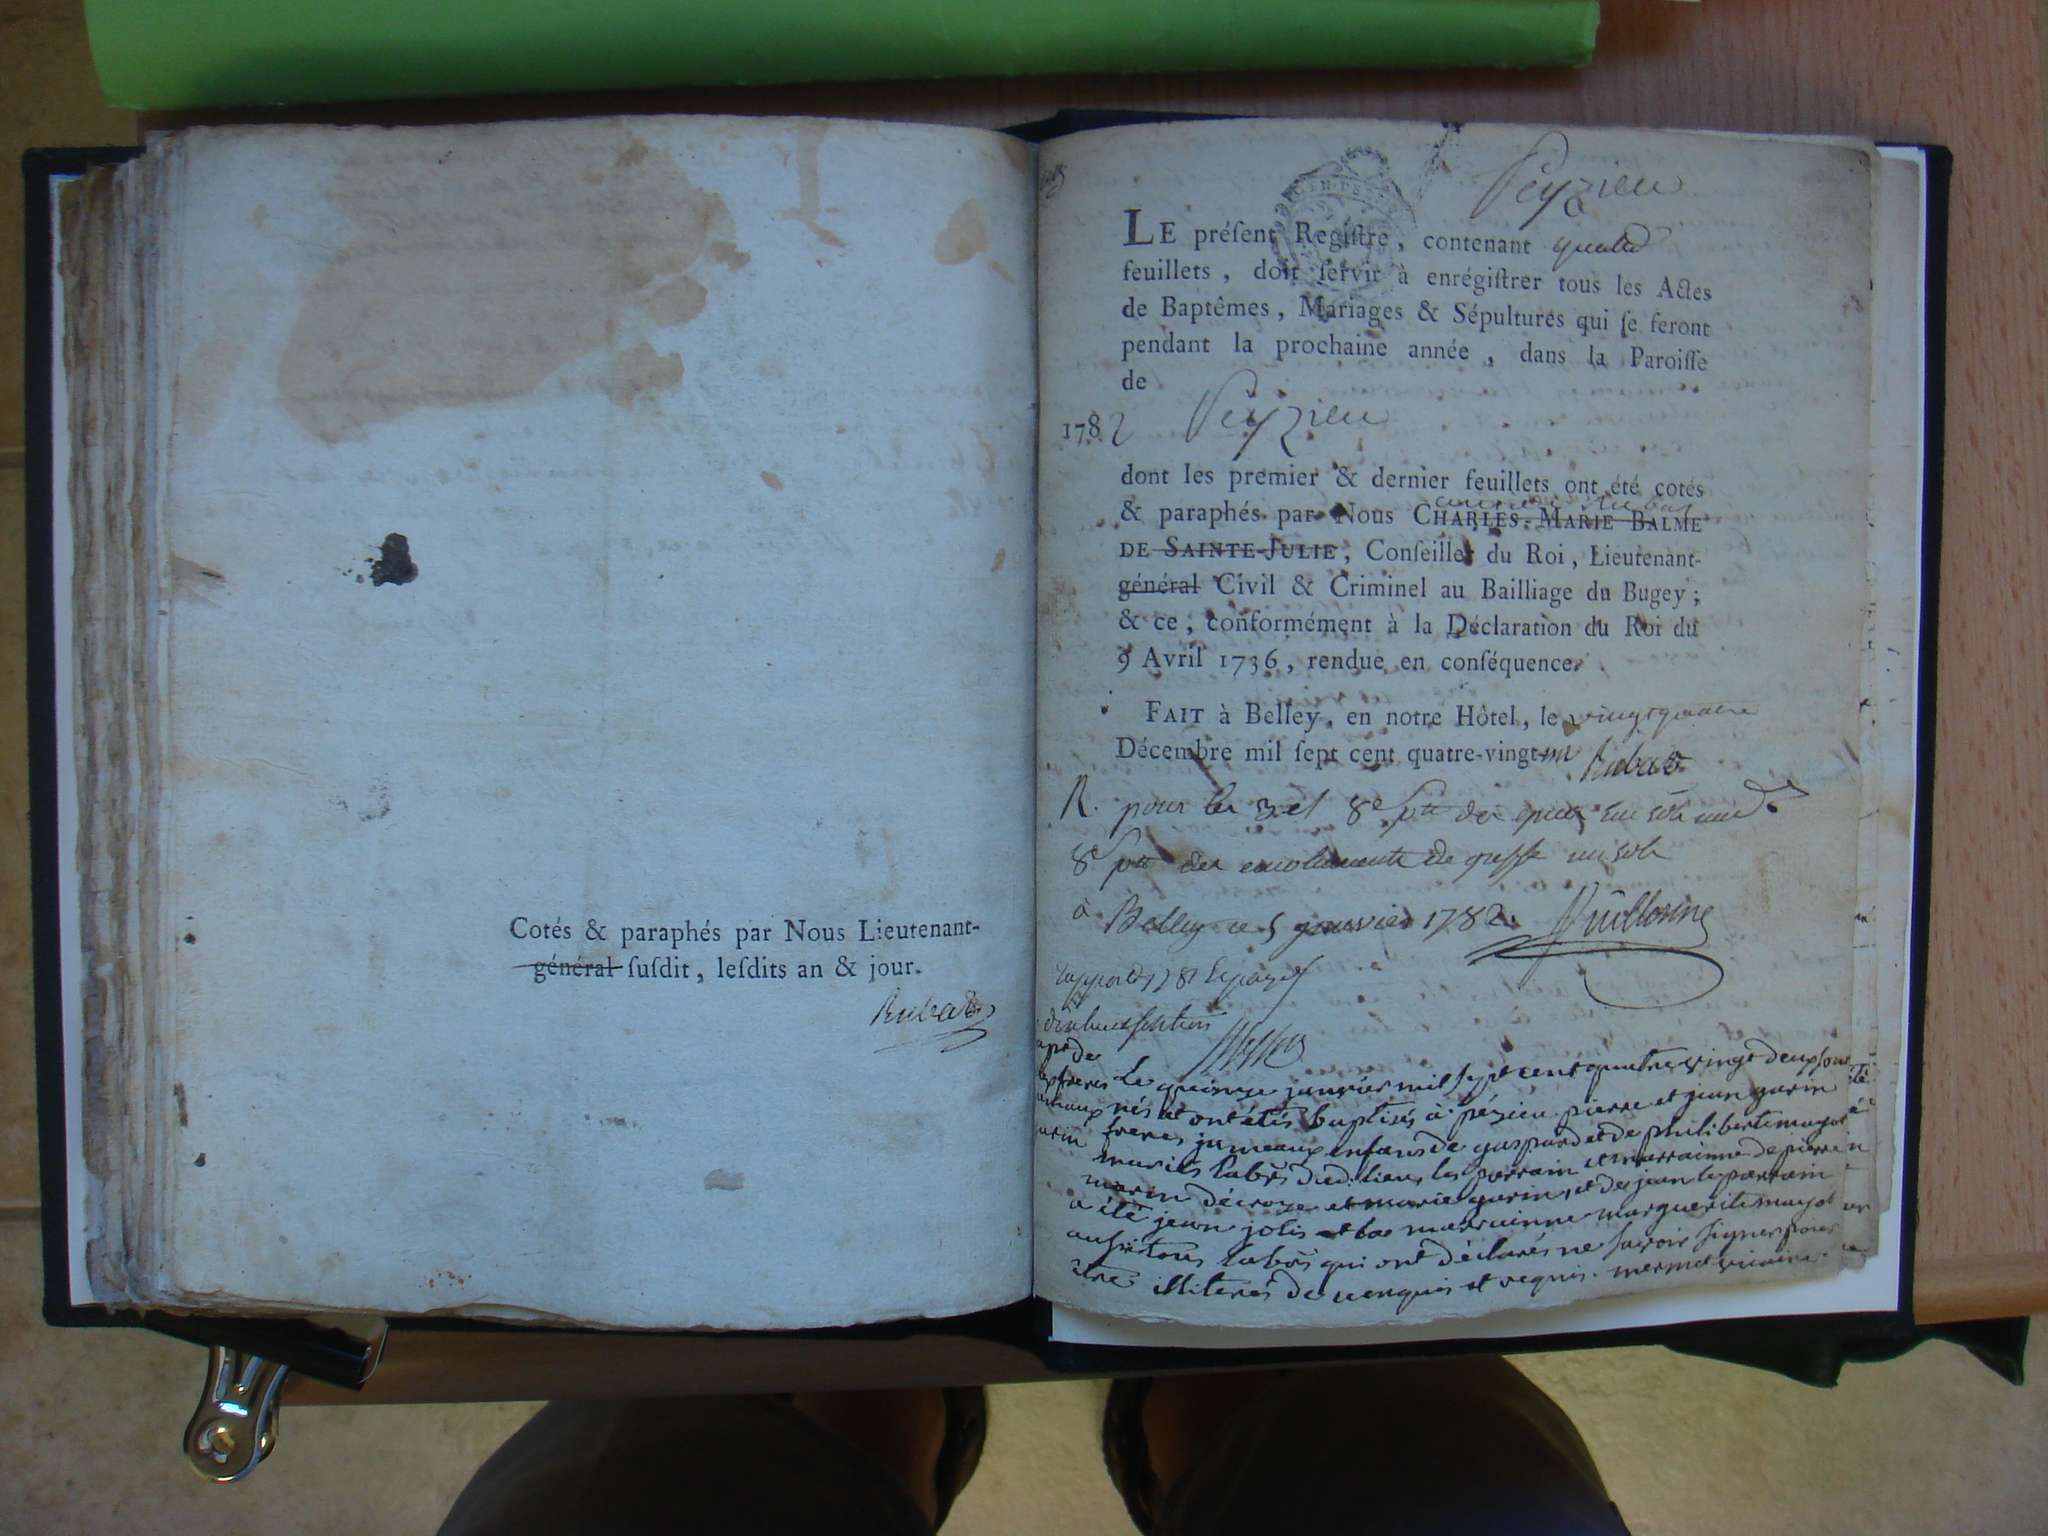 Cotés & paraphés par Nous Lieutenant-
général susdit, lesdits an & jour.
Rubat
Peyzieu
LE préſent Regiſtre, contenant quatre
feuillets, doit ſervir à enrégiſtrer tous les Actes
de Baptêmes, Mariages & Sépultures qui ſe feront
pendant la prochaine année, dans la Paroiſſe
de
1782 Peyzieu
dont les premier & dernier feuillets ont été cotés
& paraphés par Nous CHARLES-MARIE BALME
DE SAINTE-JULIE, Conſeiller du Roi, Lieutenant-
général Civil & Criminel au Bailliage du Bugey;
& ce, conformément à la Déclaration du Roi du
9 Avril 1736, rendue en conſéquence.
FAIT à Belley, en notre Hôtel, le vingt quatre
Décembre mil ſept cent quatre-vingt-un Rubat
R. pour les 3 et 8e
8e des emoluments de greffe un sols
à Belley ce 5 janvier 1782.
Le quinze janvier mil sept cent quatre vingt deux sont
nés et ont étés baptisés à pézieu pierre et jean gurin
freres jumeaux enfans de gaspard et de philiberte mayot
mariés labrs dud. lieu, les parrain et marrainne de pierre
marin décroze et marie gurin, et de jean le parrain
a été jean jolis et la marrainne marguerite mayot
aussi tous labrs qui ont déclarés ne savoir signer pour
être illiterés de ce enquis et requis. mermet vicaire